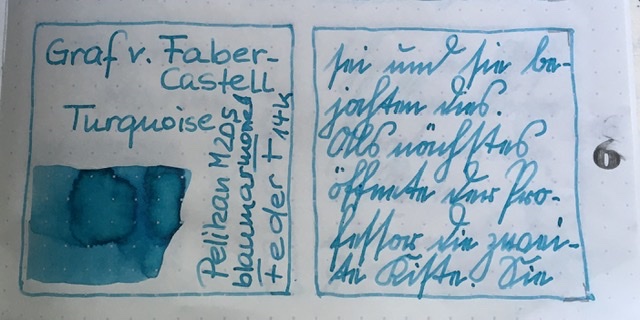 Graf v. Faber-
Castell
Turquoise
Pelikan M205
Feder F 14K
sei und sie be-
jahten dies.
Als nächstes
öffnete der Pro-
fessor die zwei-
te Kiste. Sie
6